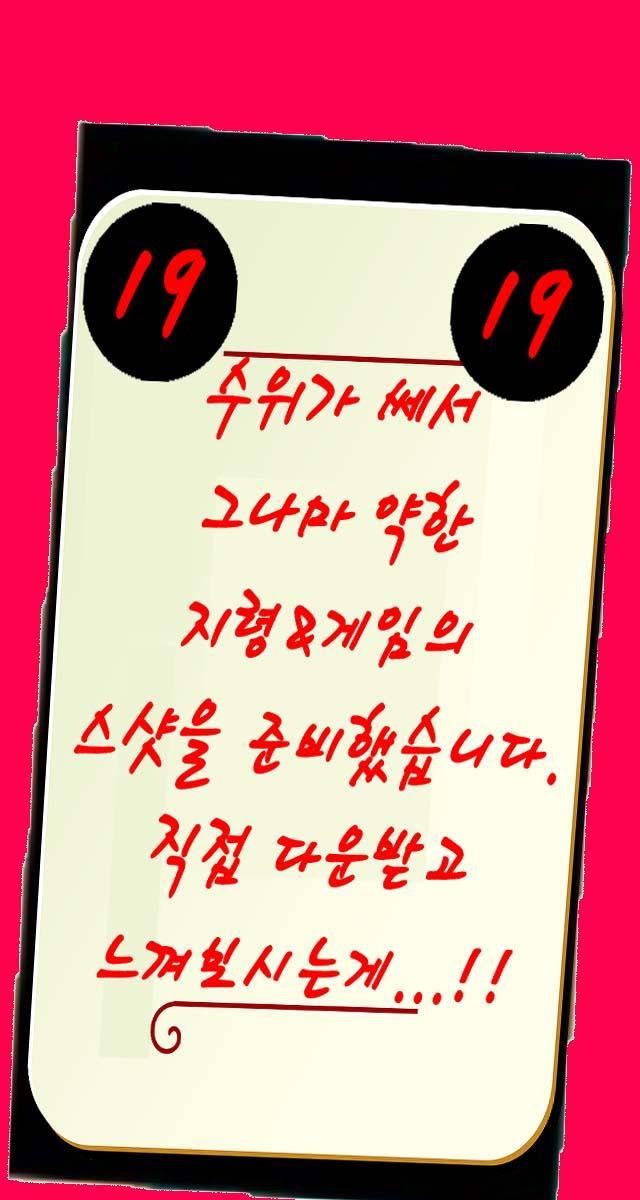 19 19
수위가 쎄서
그나마 약한
지형&게임의
스샷을 준비했습니다.
직접 다운받고
느껴보시는게...!!